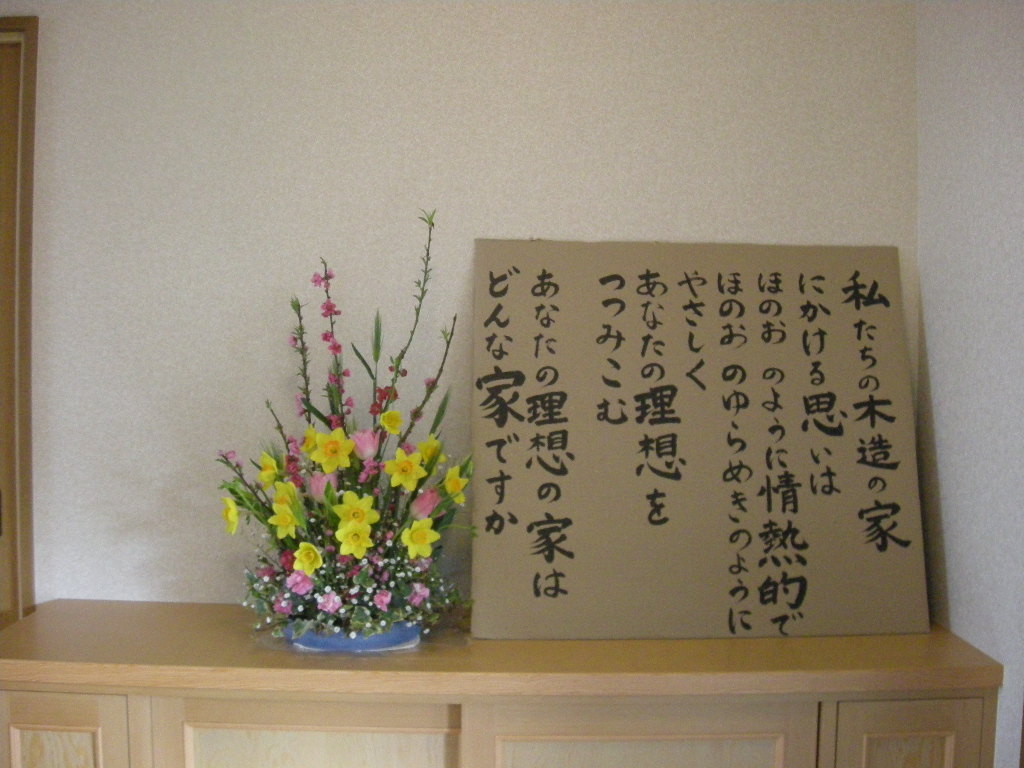 私たちの木造の家
にかける思いは
ほのお のように情熱的で
ほのお のゆらめきのように
やさしく
あなたの理想を
つつみこむ
あなたの理想の家は
どんな家ですか